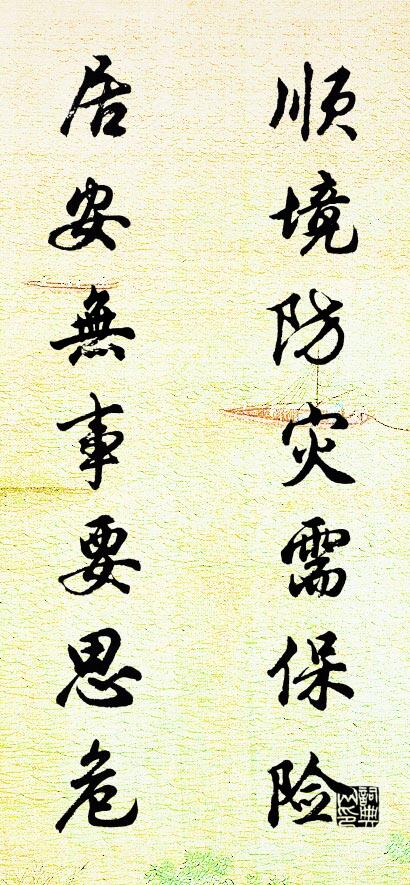 顺境防灾需保险
居安無事要思危
詞典